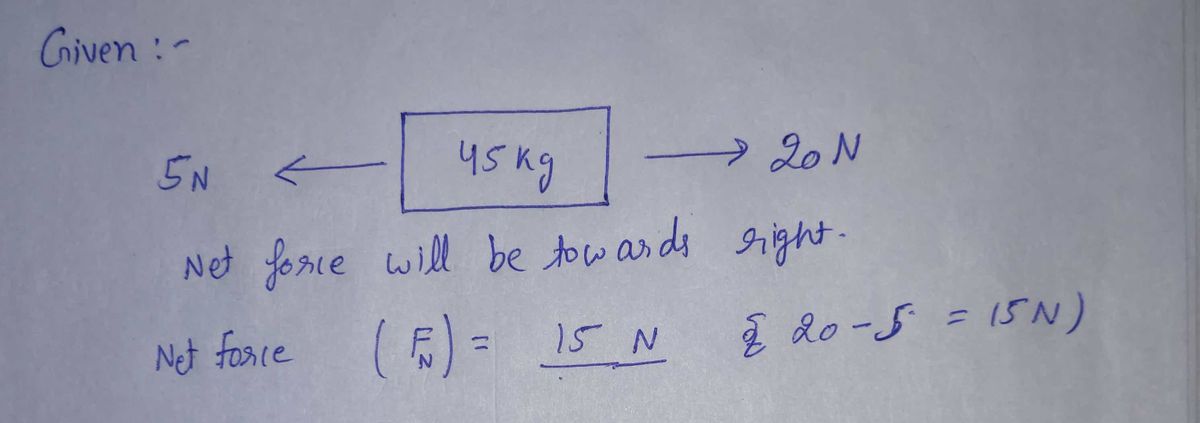 Given :-
5N ← 45 kg → 20 N
Net force will be towards right.
Net force (F_N) = 15 N { 20 - 5 = 15 N )